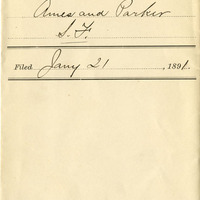 Ames and Parker
S. F.
Filed Jany 21, 1891.